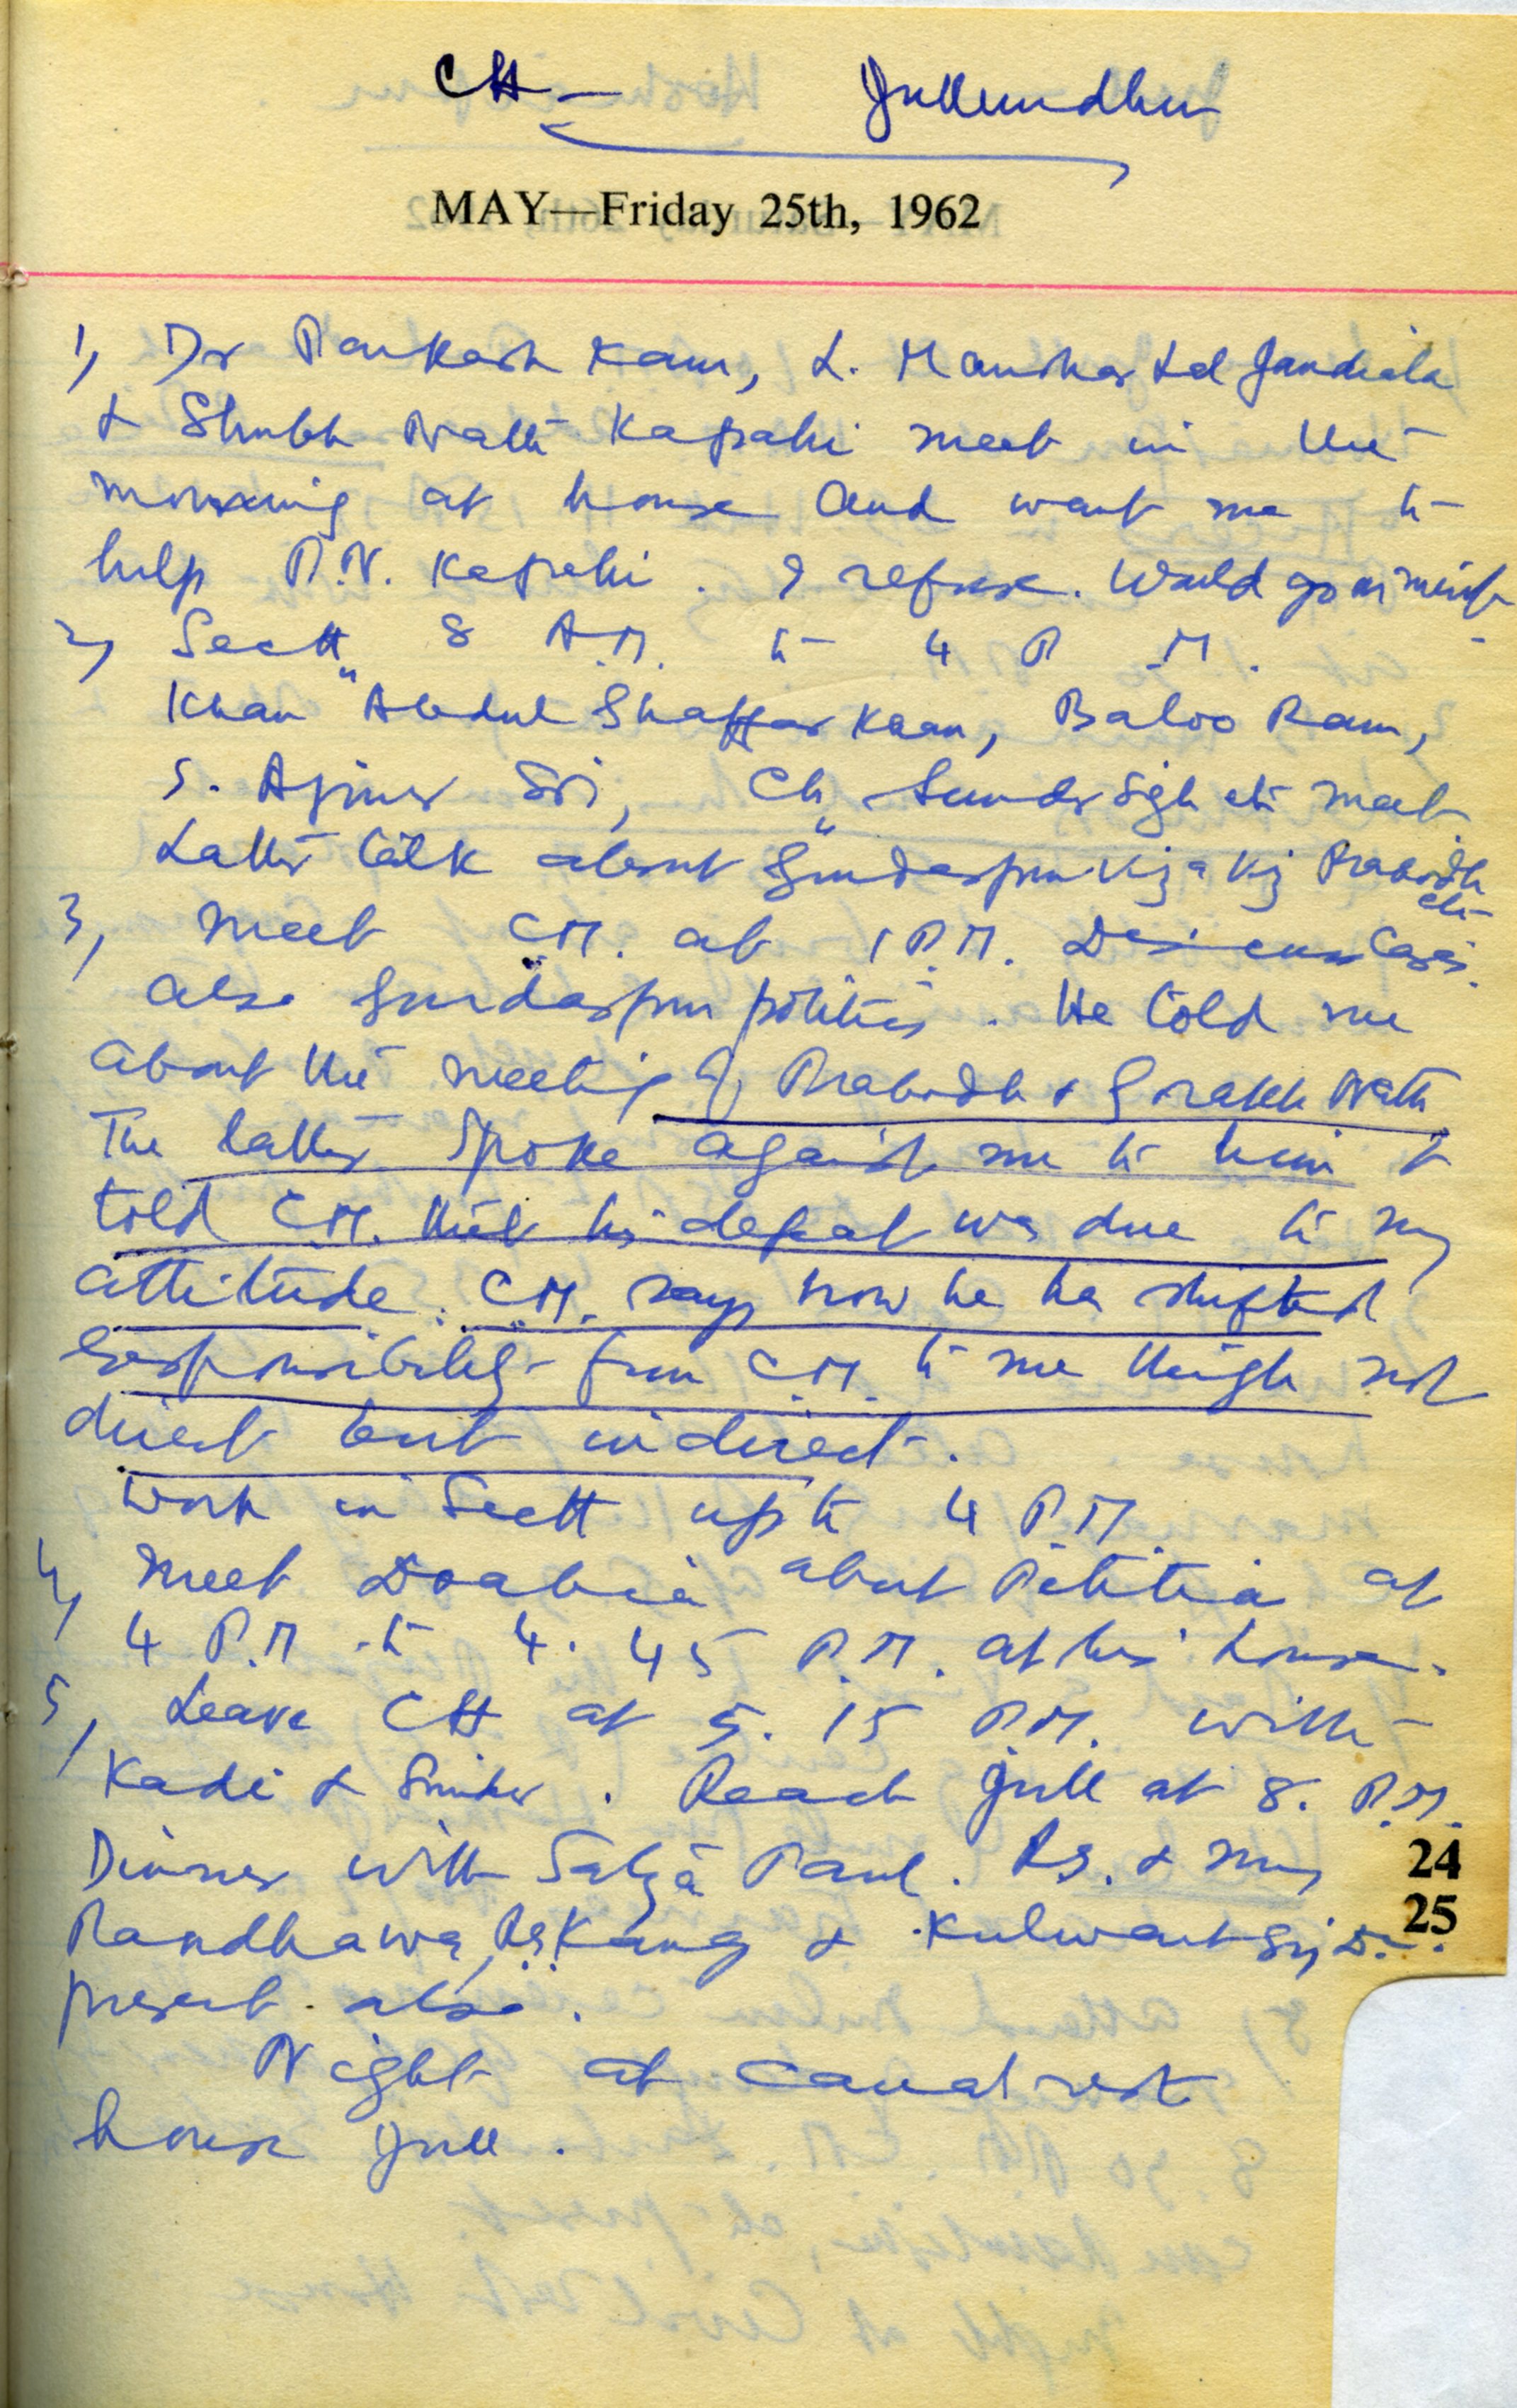 CH — Jullundhur
MAY—Friday 25th, 1962
1, Dr Parkash Kaur, L. Manohar Lal Jandiala
& Shubh Nath Kapahi meet in the
morning at house and want me to
help P.N. Kapahi. I refuse. Would go on merit
2, Sectt 8 A.M. to 4 P.M.
Khan Abdul Ghaffar Khan, Baloo Ram,
S. Ajmer Sri, Ch Sunder Sigh etc meet
Latter talk about Gurdaspur viz a viz Prabodh
etc
3, Meet C.M. at 1 P.M. Discuss Cases.
Also Gurdaspur politics. He told me
about the meeting of Prabodh & Gorakh Nath
The latter spoke against me to him &
told C.M. that his defeat was due to my
attitude. C.M. says now he has shifted
responsibility from C.M. to me though not
direct but indirect.
Work in Sectt upto 4 P.M
4, Meet Doabia about Petition at
4 P.M to 4.45 P.M. at his house.
5, Leave CH at 5.15 P.M. with
Kadi & . Reach Jull at 8. P.M.
Dinner with Satya Paul. R.S. & Mrs
24
Randhawa, R.S. Kang & Kulwant
25
present also.
Night at Canal rest
house Jull.